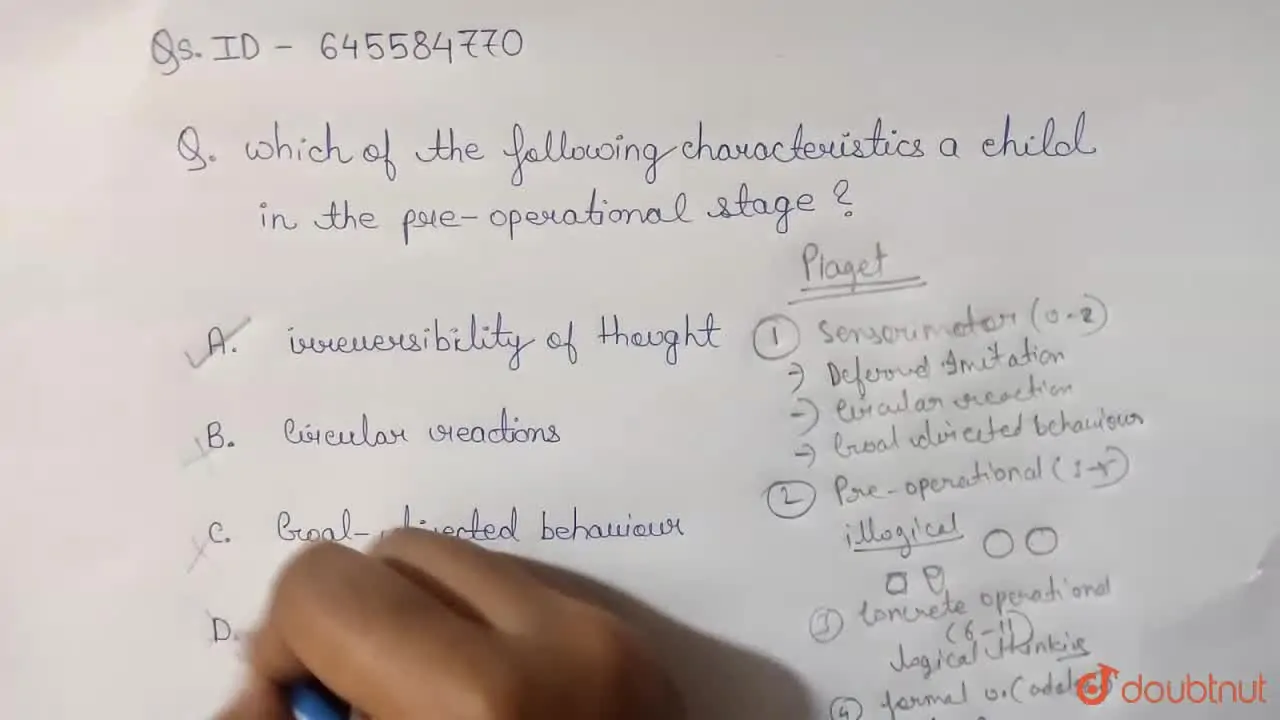 Qs. ID - 645584770
Q. which of the following characteristics a child
in the pre-operational stage?
Piaget
A. irreversibility of thought
① Sensorimotor (0-2)
→ Deferoud Imitation
→ Circular reaction
→ Goal directed behaviour
B. Circular reactions
② Pre-operational
illogical
C. Goal-directed behaviour
③ Concrete operational
(6-11)
logical thinking
D.
④ formal o.
doubtnut